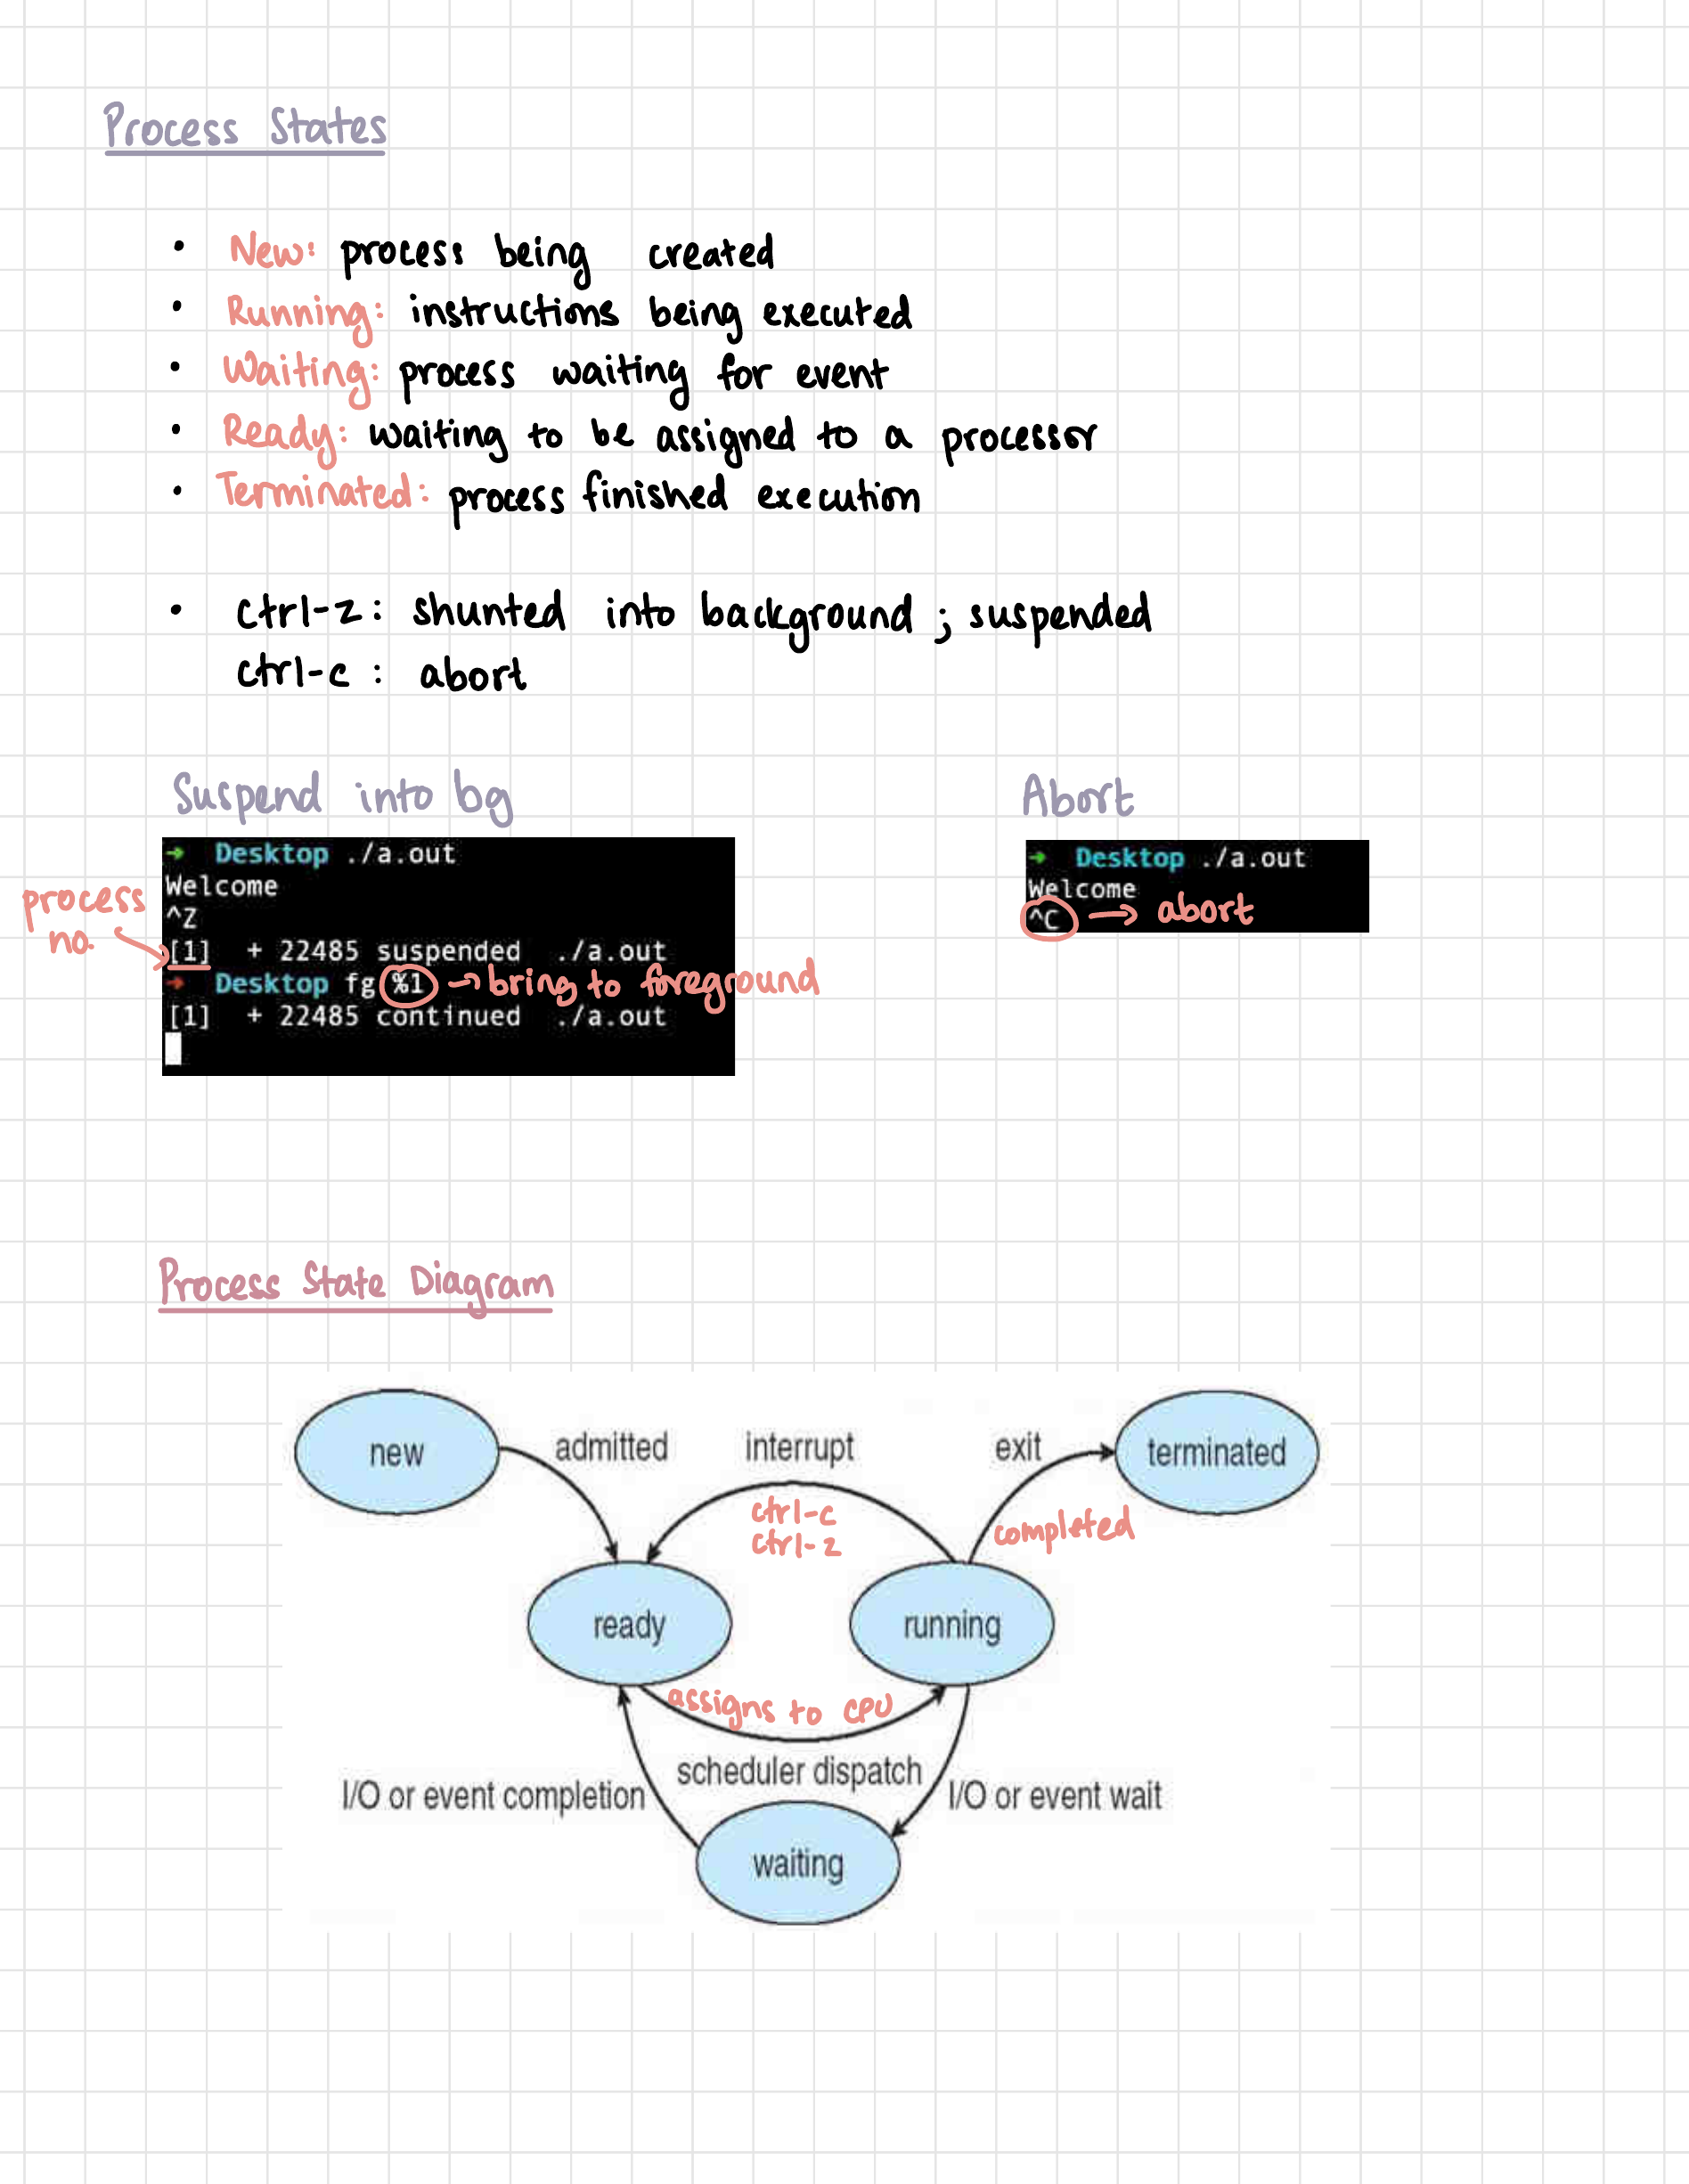 Process States
• New: process being created
• Running: instructions being executed
• Waiting: process waiting for event
• Ready: waiting to be assigned to a processor
• Terminated: process finished execution
• ctrl-z: shunted into background; suspended
ctrl-c: abort
Suspend into bg
→ Desktop ./a.out
Welcome
^Z
process no.
[1] + 22485 suspended ./a.out
→ Desktop fg %1 → bring to foreground
[1] + 22485 continued ./a.out
Abort
→ Desktop ./a.out
Welcome
^C → abort
Process State Diagram
new
admitted
interrupt
exit
terminated
ctrl-c
ctrl-z
completed
ready
running
assigns to CPU
scheduler dispatch
I/O or event completion
I/O or event wait
waiting